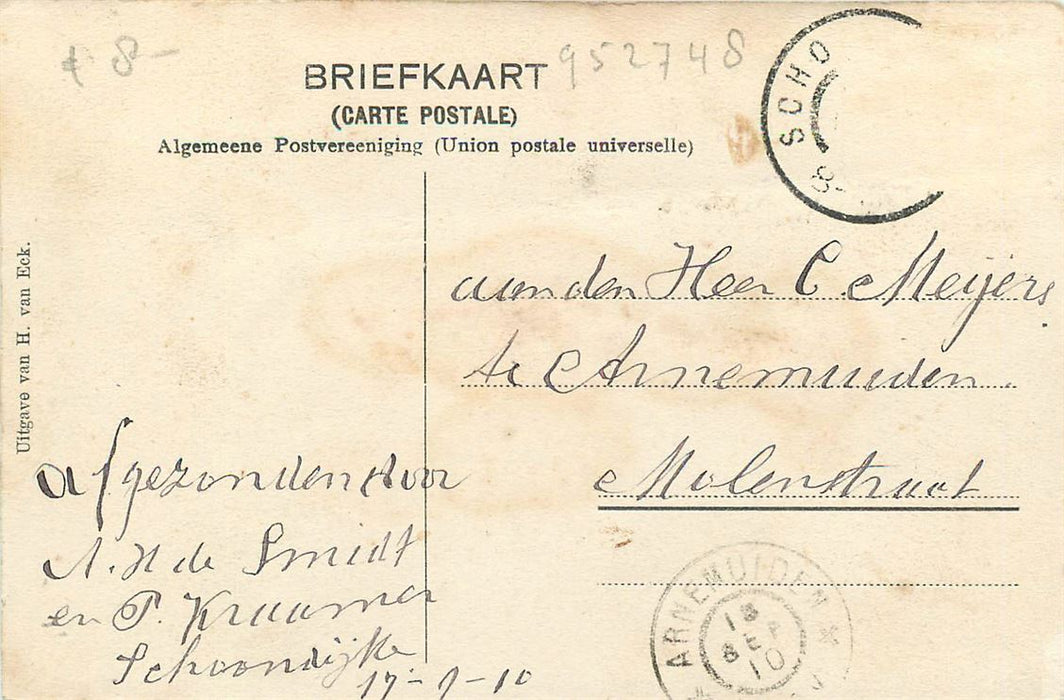 € 8-
952748
BRIEFKAART
(CARTE POSTALE)
Algemeene Postvereeniging (Union postale universelle)
SCHO
8
Uitgave van H. van Eck.
aan den Heer C. Meijers
te Arnemuiden.
Molenstraat
afgezonden door
A. H de Smidt
en P. Kraamer
Schoondijke
17-9-10
ARNEMUIDEN *
18
SEP
10